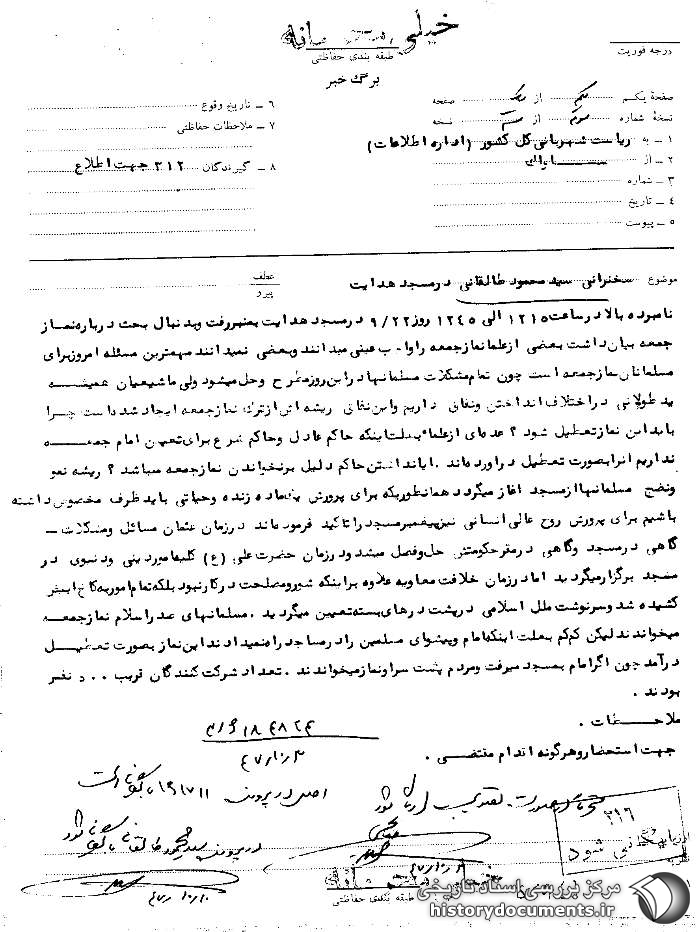 خیلی محرمانه
طبقه بندی حفاظتی
درجه فوریت
برگ خبر
صفحهٔ یکم یکم از یک صفحه
نسخهٔ شماره سوم از سه نسخه
۱ ـ به ریاست شهربانی کل کشور (اداره اطلاعات)
۲ ـ از ساواک
۳ ـ شماره
۴ ـ تاریخ
۵ ـ پیوست
۶ ـ تاریخ وقوع
۷ ـ ملاحظات حفاظتی
۸ ـ گیرندگان ۳۱۲ جهت اطلاع
موضوع سخنرانی سید محمود طالقانی در مسجد هدایت
عطف
پیرو
نامبرده بالا در ساعت ۱۲۱۵ الی ۱۲۴۵ روز ۹/۲۲ در مسجد هدایت بمنبر رفت و بدنبال بحث درباره نماز
جمعه بیان داشت بعضی از علما نماز جمعه را واجب عینی میدانند و بعضی نمیدانند مهمترین مسئله امروز برای
مسلمانان نماز جمعه است چون تمام مشکلات مسلمانها در این روز مطرح و حل میشود ولی ما شیعیان همیشه
ید طولانی در اختلاف انداختن و نفاق داریم و این نفاق ریشه اش از ترک نماز جمعه ایجاد شده است چرا
باید این نماز تعطیل شود ؟ عده ای از علماء بعلت اینکه حاکم عادل و حاکم شرع برای تعیین امام جمعه
نداریم آنرا بصورت تعطیل در اورده اند . ایا نداشتن حاکم دلیل بر نخواندن نماز جمعه میباشد ؟ ریشه نمو
و نضج مسلمانها از مسجد اغاز میگردد همانطوریکه برای پرورش یک ماده زنده و حیاتی باید ظرف مخصوص داشته
باشیم برای پرورش روح عالی انسانی نیز پیغمبر مسجد را تاکید فرموده اند در زمان عثمان مسائل و مشکلات ـ
گاهی در مسجد و گاهی در مقر حکومتش حل و فصل میشد و در زمان حضرت علی (ع) کلیه امور دینی و دنیوی در
مسجد برگزار میگردید اما در زمان خلافت معاویه علاوه بر اینکه شور و مصلحت در کار نبود بلکه تمام امور به کاخ اخضر
کشیده شد و سرنوشت ملل اسلامی در پشت درهای بسته تعیین میگردید . مسلمانهای صدر اسلام نماز جمعه
میخواندند لیکن کم کم بعلت اینکه امام و پیشوای مسلمین را در مساجد راه نمیدادند این نماز بصورت تعطیل
درآمد چون اگر امام بمسجد میرفت مردم پشت سر او نماز میخواندند . تعداد شرکت کنندگان قریب ۵۰۰ نفر
بودند .
ملاحظات .
جهت استحضار و هرگونه اقدام مقتضی .
۴۷/۱۰/۲
اصل در پرونده ۱۹۱۷۱۱ بایگانی است
در پرونده سید محمود طالقانی بایگانی شود
۴۷/۱۰/۱۰
۳۱۶
بایگانی شود
طبقه بندی حفاظتی
مرکز بررسی اسناد تاریخی
historydocuments.ir